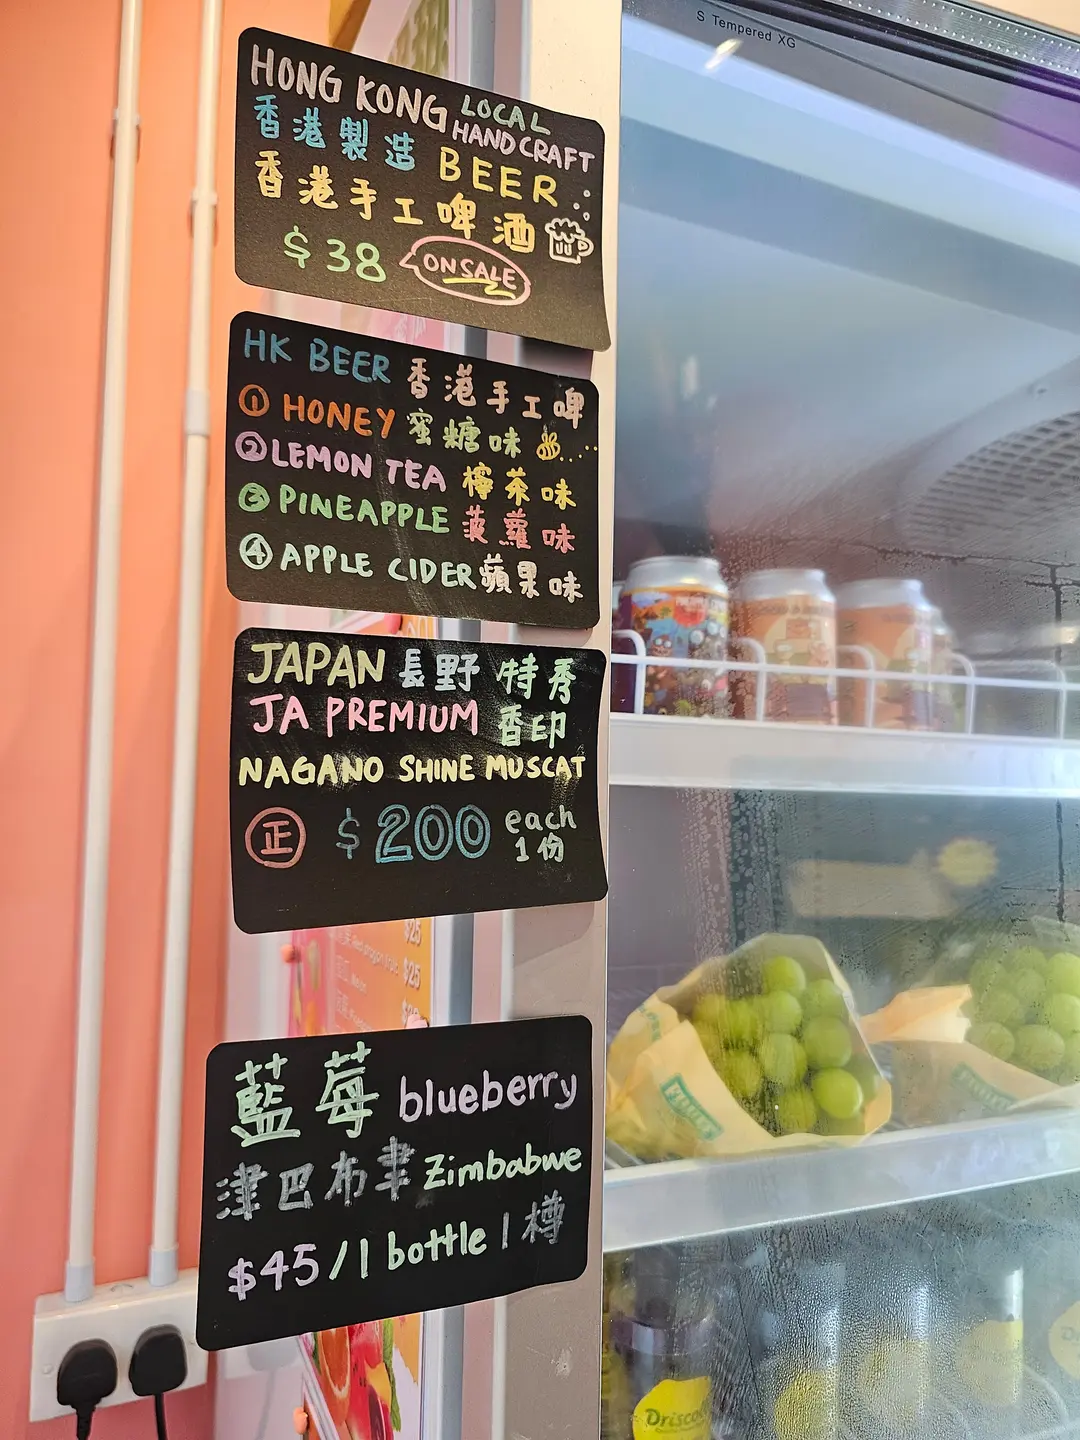 S Tempered XG
HONG KONG LOCAL
HANDCRAFT
香港製造 BEER
香港手工啤酒
$38 ON SALE
HK BEER 香港手工啤
① HONEY 蜜糖味
② LEMON TEA 檸茶味
③ PINEAPPLE 菠蘿味
④ APPLE CIDER 蘋果味
JAPAN 長野 特秀
JA PREMIUM 香印
NAGANO SHINE MUSCAT
正 $200 each
1份
$25
Red dragon fruit $25
藍莓 blueberry
津巴布韋 Zimbabwe
$45/1 bottle 1樽